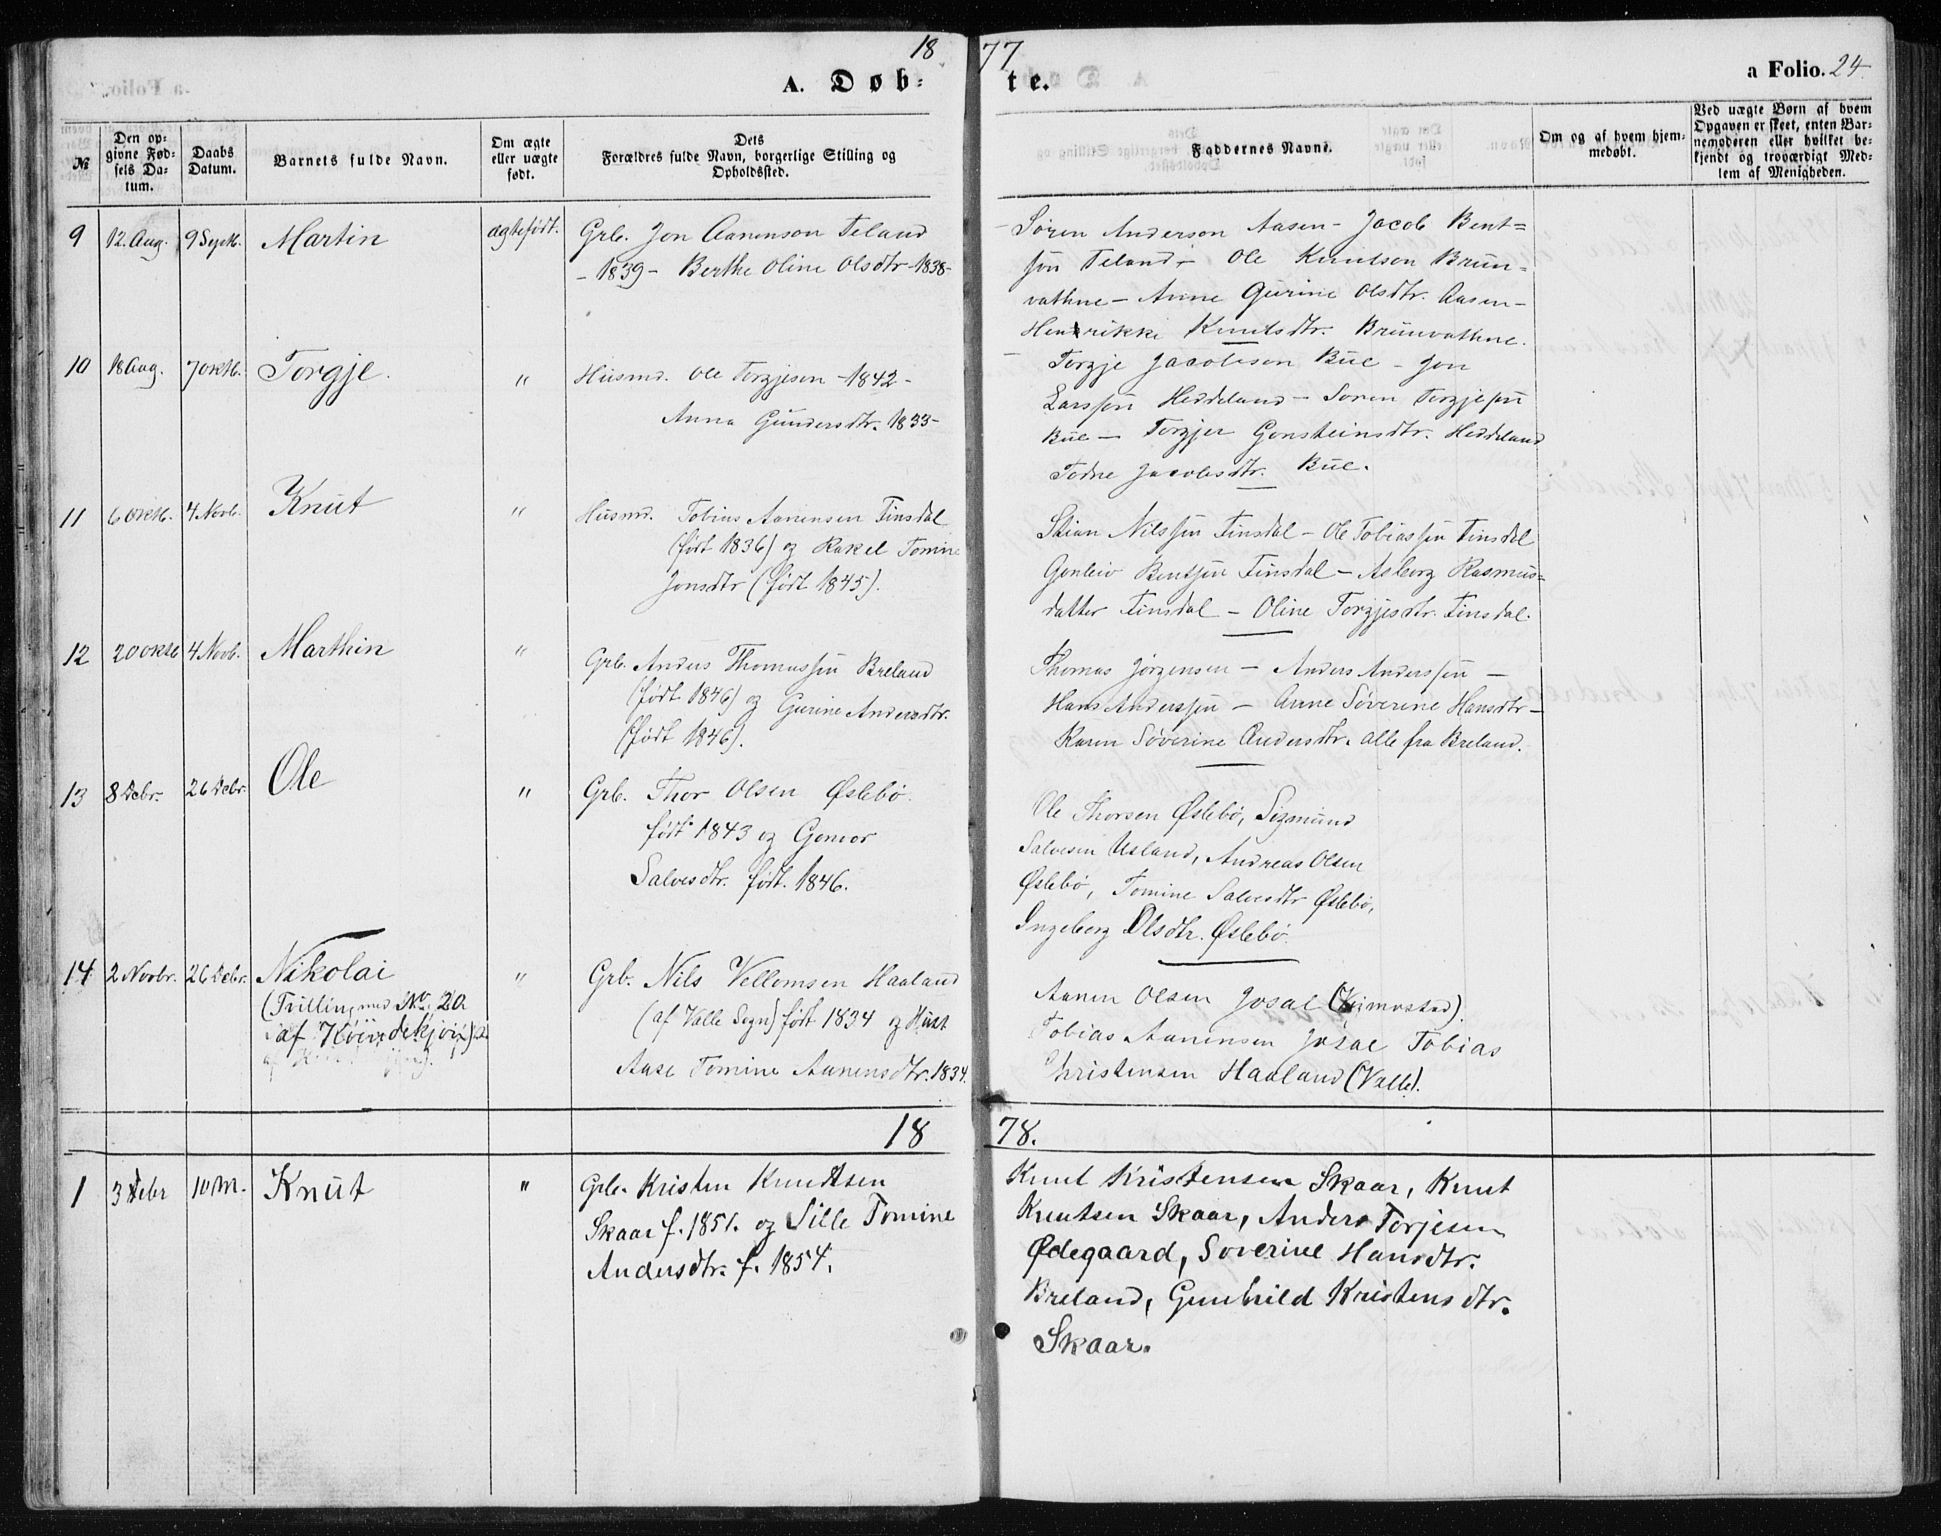 1877
A. Døbte.
a Folio. 24.
№
Den opgivne Fødsels Datum.
Daabs Datum.
Barnets fulde Navn.
Om ægte eller uægte født.
Dets Forældres fulde Navn, borgerlige Stilling og Opholdssted.
Faddernes Navne.
Om og af hvem hjemmedøbt.
Ved uægte Børn af hvem Opgaven er skeet, enten Barnemoderen eller hvilket bekjendt og troværdigt Medlem af Menigheden.
9 12 Aug. 9 Septb. Martin ægtefødt.
Grb. Jon Aanenson Feland
- 1839 - Berthe Oline Olsdtr - 1838 -
Søren Anderson Aasen - Jacob Bent=
søn Feland - Ole Knutson Brun=
vathne - Anne Gurine Olsdtr. Aasen -
Henrikke Knutsdtr. Brunvathne.
10 18 Aug. 7 Oktb. Torgje. "
Husmd. Ole Torgjeson - 1842 -
Anna Gundersdtr. 1833 -
Torgje Jacobson Bue - Jon
Larssøn Heddeland - Soren Torgjesøn
Bue - Torgjer Gonsteinsdtr. Heddeland
Todne Jacobsdtr. Bue.
11 6 Oktb. 4 Novb. Knut "
Husmd. Tobias Aanensen Finsdal
(født 1836) og Rakel Tomine
Jonsdtr (født 1845).
Stian Nilssøn Finsdal - Ole Tobiassøn Finsdal
Gonleiv Bentsøn Finsdal - Asborg Rasmus=
datter Finsdal - Oline Torgjesdtr. Finsdal.
12 20 Oktb 4 Novb. Marthin "
Grb. Anders Thomassøn Breland
(født 1846) og Gurine Andersdtr.
(født 1846).
Thomas Jørgensen - Anders Anderssøn -
Hans Anderssøn - Anne Søverine Hansdtr -
Karen Søverine Andersdtr. alle fra Breland.
13 8 Debr. 26 Debr. Ole "
Grb. Thor Olsen Øslebø.
født 1843 og Gonvor
Salvesdtr. født. 1846.
Ole Thorsen Øslebø, Sigmund
Salvesen Usland, Andreas Olsen
Øslebø, Tomine Salvesdtr Øslebø,
Ingeborg Olsdtr. Øslebø.
14 2 Novbr. 26 Debr. Nikolai "
(Trilling med No. 20
af
Grb. Nils Vellomsen Haaland
(af Valle Sogn) født 1834 og Hust
Aase Tomine Aanensdtr. 1834.
Aanen Olsen Josal
Tobias Aanensen Josal Tobias
Christensen Haaland (Valle).
1878.
1 3 Debr 10 M. Knut "
Grb. Kristen Knudtsen
Skaar f. 1851. og Sille Tomine
Andersdtr. f. 1854.
Knut Kristensen Skaar, Knut
Knutsen Skaar, Anders Torjesen
Ødegaard, Soverine Hansdtr.
Breland, Gunhild Kristensdtr.
Skaar.